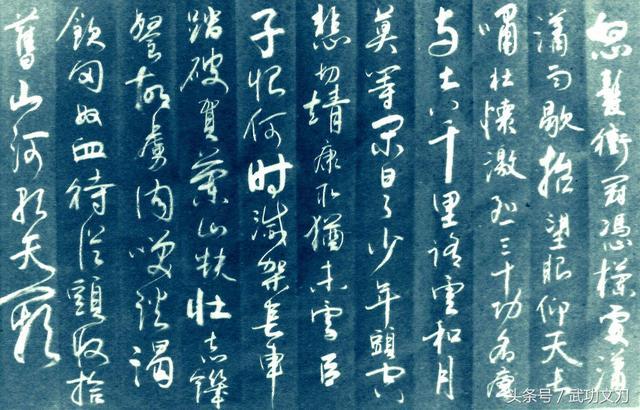 怒髮衝冠憑欄處瀟
瀟雨歇抬望眼仰天長
嘯壯懷激烈三十功名塵
与土八千里路雲和月
莫等閑白了少年頭空
悲切靖康恥猶未雪臣
子恨何時滅駕長車
踏破賀蘭山缺壯志饑
餐胡虜肉笑談渴
飲匈奴血待從頭收拾
舊山河朝天闕
头条号 / 武功文刀